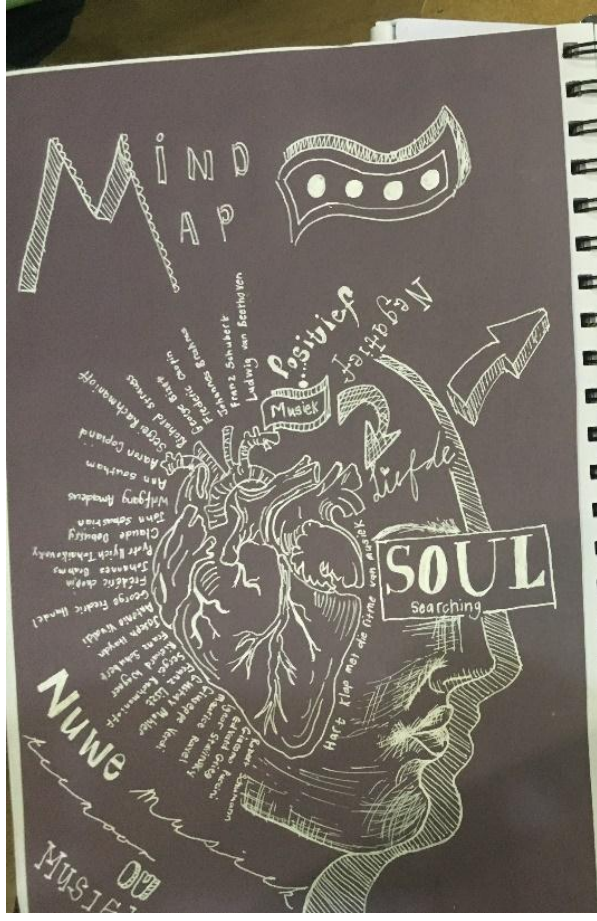 MIND
MAP
Positief
Negatief
Musiek
Liefde
SOUL
Searching
Hart klap met die ritme van musiek
Ludwig van Beethoven
Franz Schubert
Johannes Brahms
Frédéric Chopin
George Bizet
Richard Strauss
Sergei Rachmaninoff
Aaron Copland
Ann Southam
Wolfgang Amadeus
John Sebastian
Claude Debussy
Pyotr Ilyich Tchaikovsky
Johannes Brahms
Frédéric chopin
George Fredric Handel
Antonio Vivaldi
Joseph Haydn
Franz Schubert
Richard Wagner
Franz Liszt
Gustav Mahler
Giuseppe Verdi
Maurice Ravel
Edvard Grieg
Giacomo Puccini
Schumann
Nuwe musiek